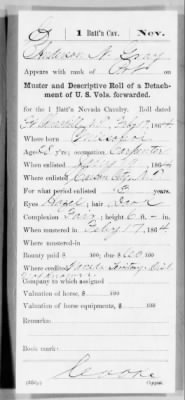 G | 1 Batt'n Cav. | Nev.
Anderson N. Gray
Appears with rank of Capt. on
Muster and Descriptive Roll of a Detach-
ment of U. S. Vols. forwarded.
for the 1 Batt'n Nevada Cavalry. Roll dated
Ft Churchill N.T., Feby 17, 1864
Where born Missouri
Age y'rs; occupation Carpenter
When enlisted 1864
Where enlisted Carson City N.T.
For what period enlisted 3 years.
Eyes Hazel; hair Dark
Complexion Fair; height 6 ft. in.
When mustered in Feby 17, 1864
Where mustered in
Bounty paid $ 100; due $ 100
Where credited Nevada Territory
Company to which assigned
Valuation of horse, $ 100
Valuation of horse equipments, $ 100
Remarks:
Book mark:
(339g)
Copyist.